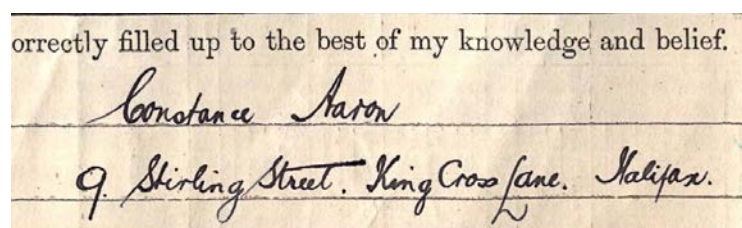 orrectly filled up to the best of my knowledge and belief.
Constance Aaron
9. Stirling Street. King Cross Lane. Halifax.